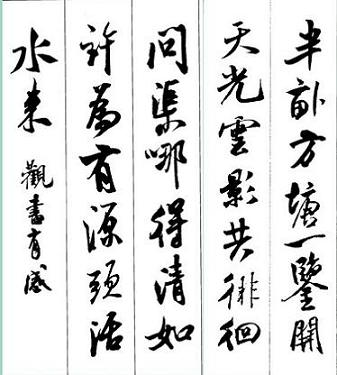 半畝方塘一鑒開
天光雲影共徘徊
問渠哪得清如
許為有源頭活
水來 觀書有感